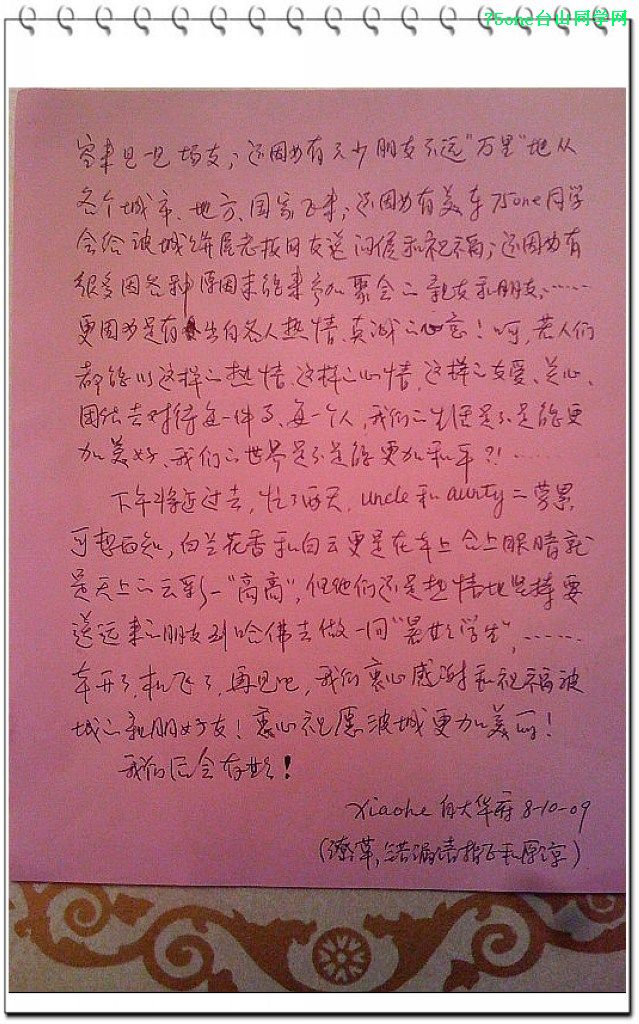 75one台山同学网
客来见一见场友；还因为有不少朋友不远"万里"地从
各个城市、地方、国家飞来；还因为有美东75one同学
会给波城饼屋老板网友送问候和祝福；还因为有
很多因各种原因未能来参加聚会的亲友和朋友，……
更因为是有出自各人热情、真诚的心意！呵，若人们
都能以这样的热情、这样的心情，这样的友爱、关心、
团结去对待每一件事、每一个人，我们的生活是不是能更
加美好、我们的世界是不是能更加和平?！……
下午将近过去，忙了两天，uncle和aunty的劳累，
可想而知，白兰花香和白云更是在车上合上眼睛就
是天上的云彩—"高高"，但他们还是热情地坚持要
送远来的朋友到哈佛去做一回"暑期学生"，……
车开了，机飞了，再见吧，我们衷心感谢和祝福波
城的亲朋好友！衷心祝愿波城更加美丽！
我们后会有期！
Xiaohe 自大华府 8-10-09
（潦草，错漏请指正和原谅）